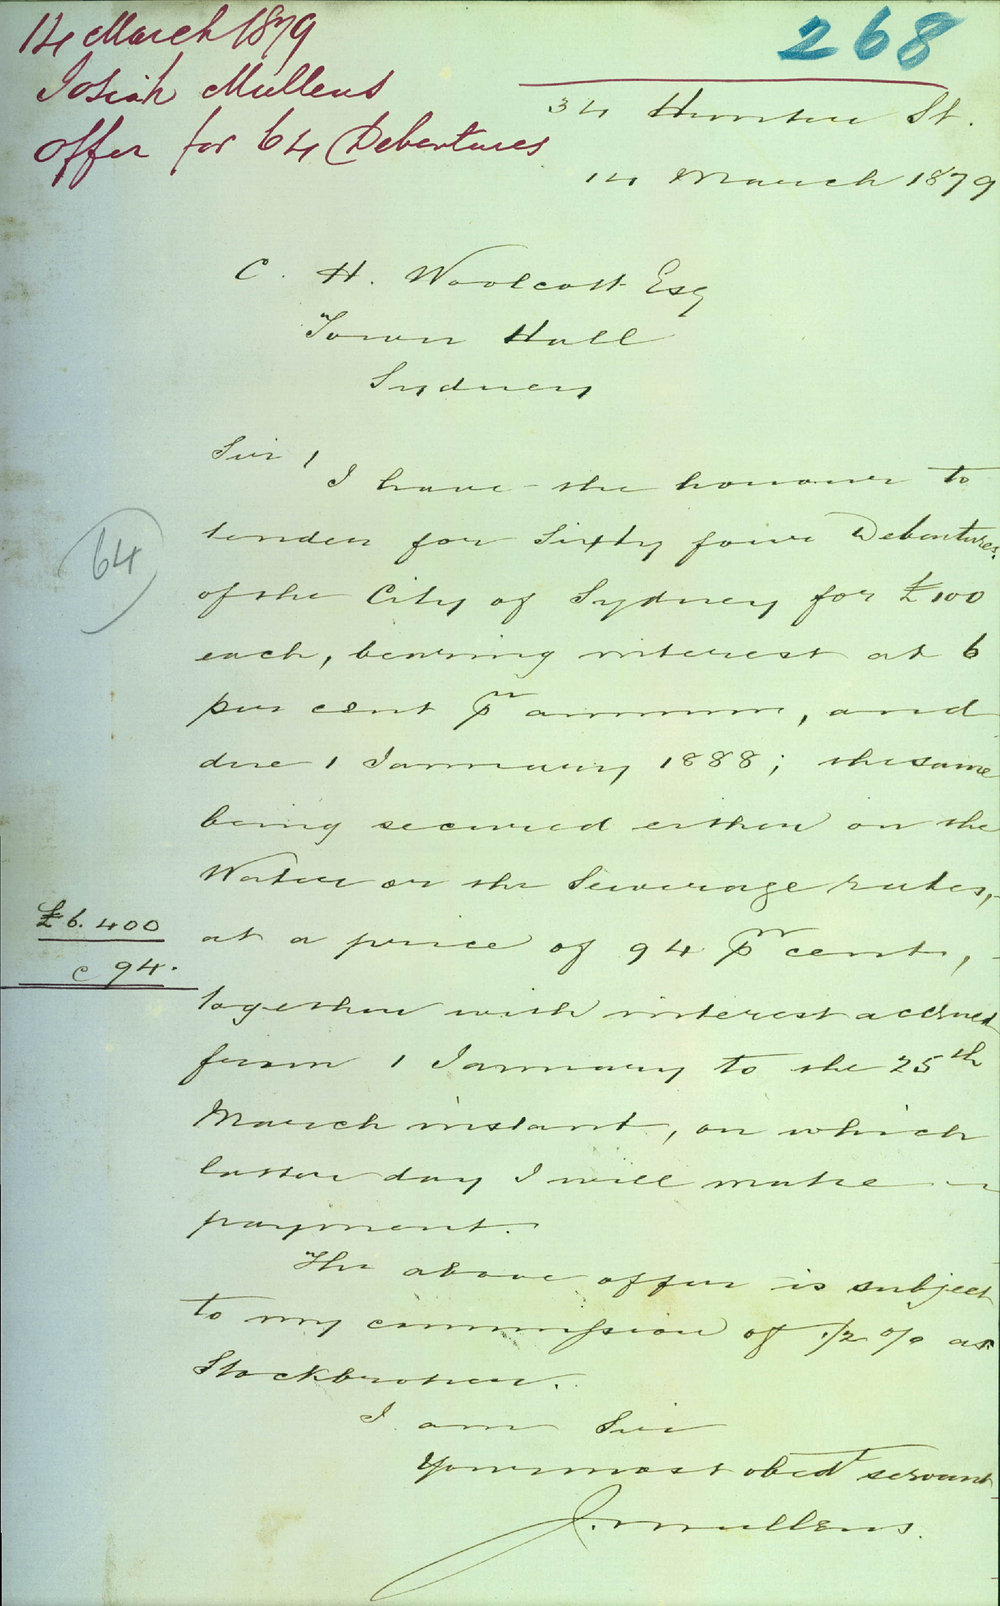 14 March 1879
Josiah Mullens
offer for 64 Debentures
268
34 Hunter St.
14 March 1879
C. H. Woolcott Esq
Town Hall
Sydney
Sir /
I have the honour to
tender for Sixty four Debentures
64
of the City of Sydney for £100
each, bearing interest at 6
per cent pr annum, and
due 1 January 1888; the same
being secured either on the
Water or the Sewerage rates,
£6.400
at a price of 94 pr cent,
c 94.
together with interest accrued
from 1 January to the 25th
March instant, on which
latter day I will make
payment.
The above offer is subject
to my commission of 1/2 % as
Stockbroker.
I am Sir
Your most obedt servant
J. Mullens.